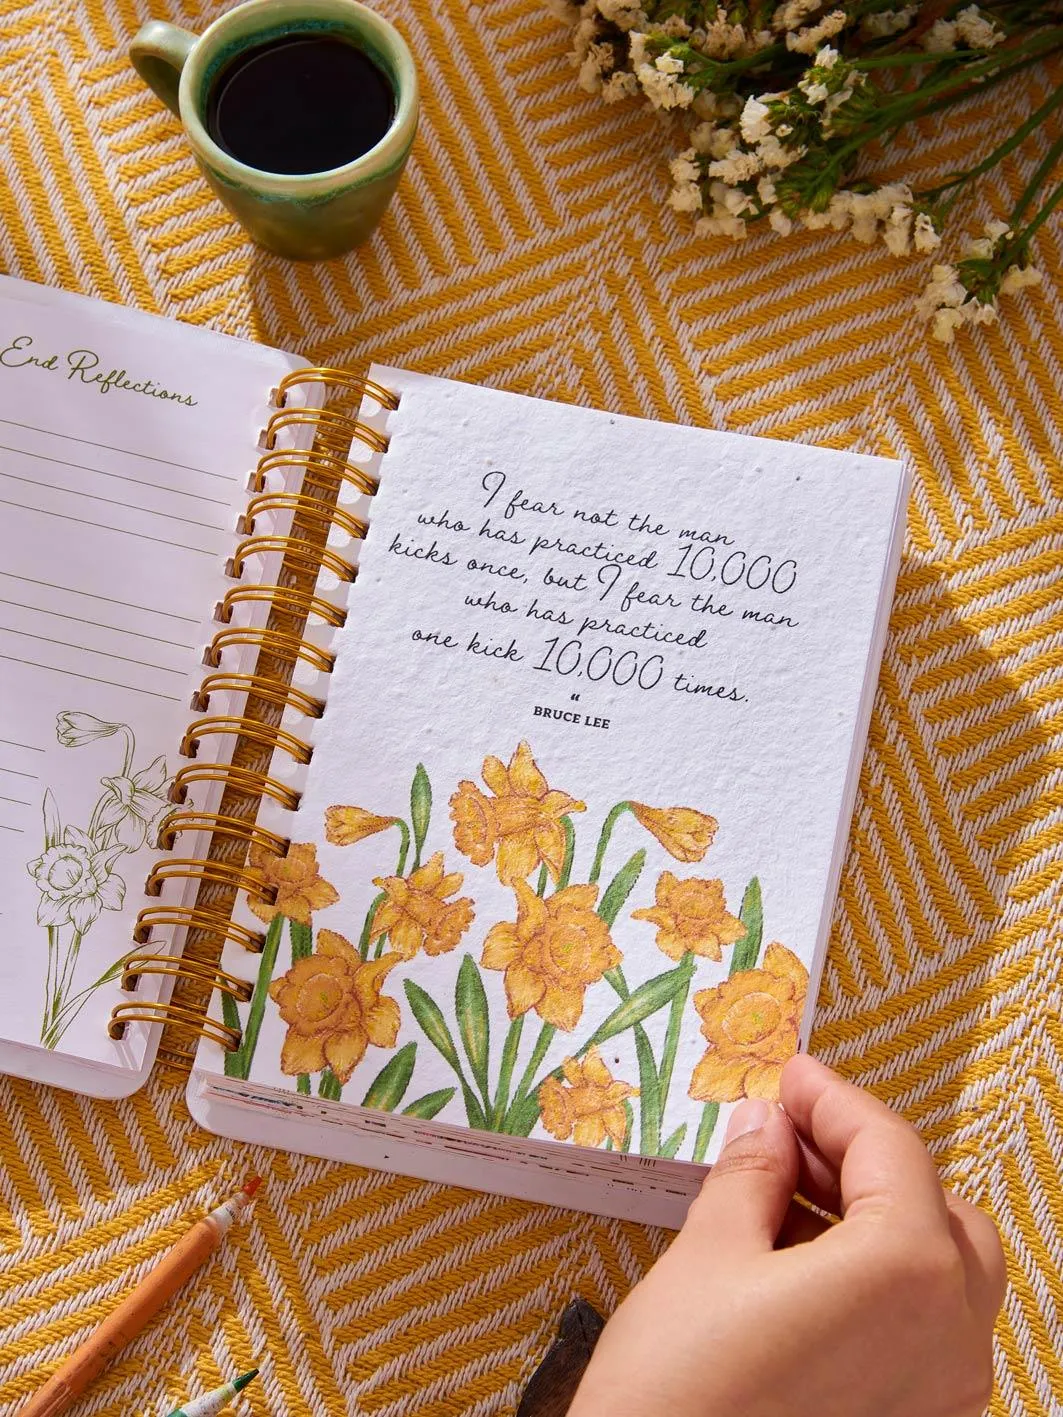 End Reflections
I fear not the man
who has practiced 10,000
kicks once, but I fear the man
who has practiced
one kick 10,000 times.
“
BRUCE LEE